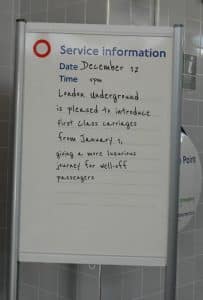 Service information
Date December 12
Time
London Underground
is pleased to introduce
first class carriages
from January 1,
giving a more luxurious
journey for well-off
passengers
Point